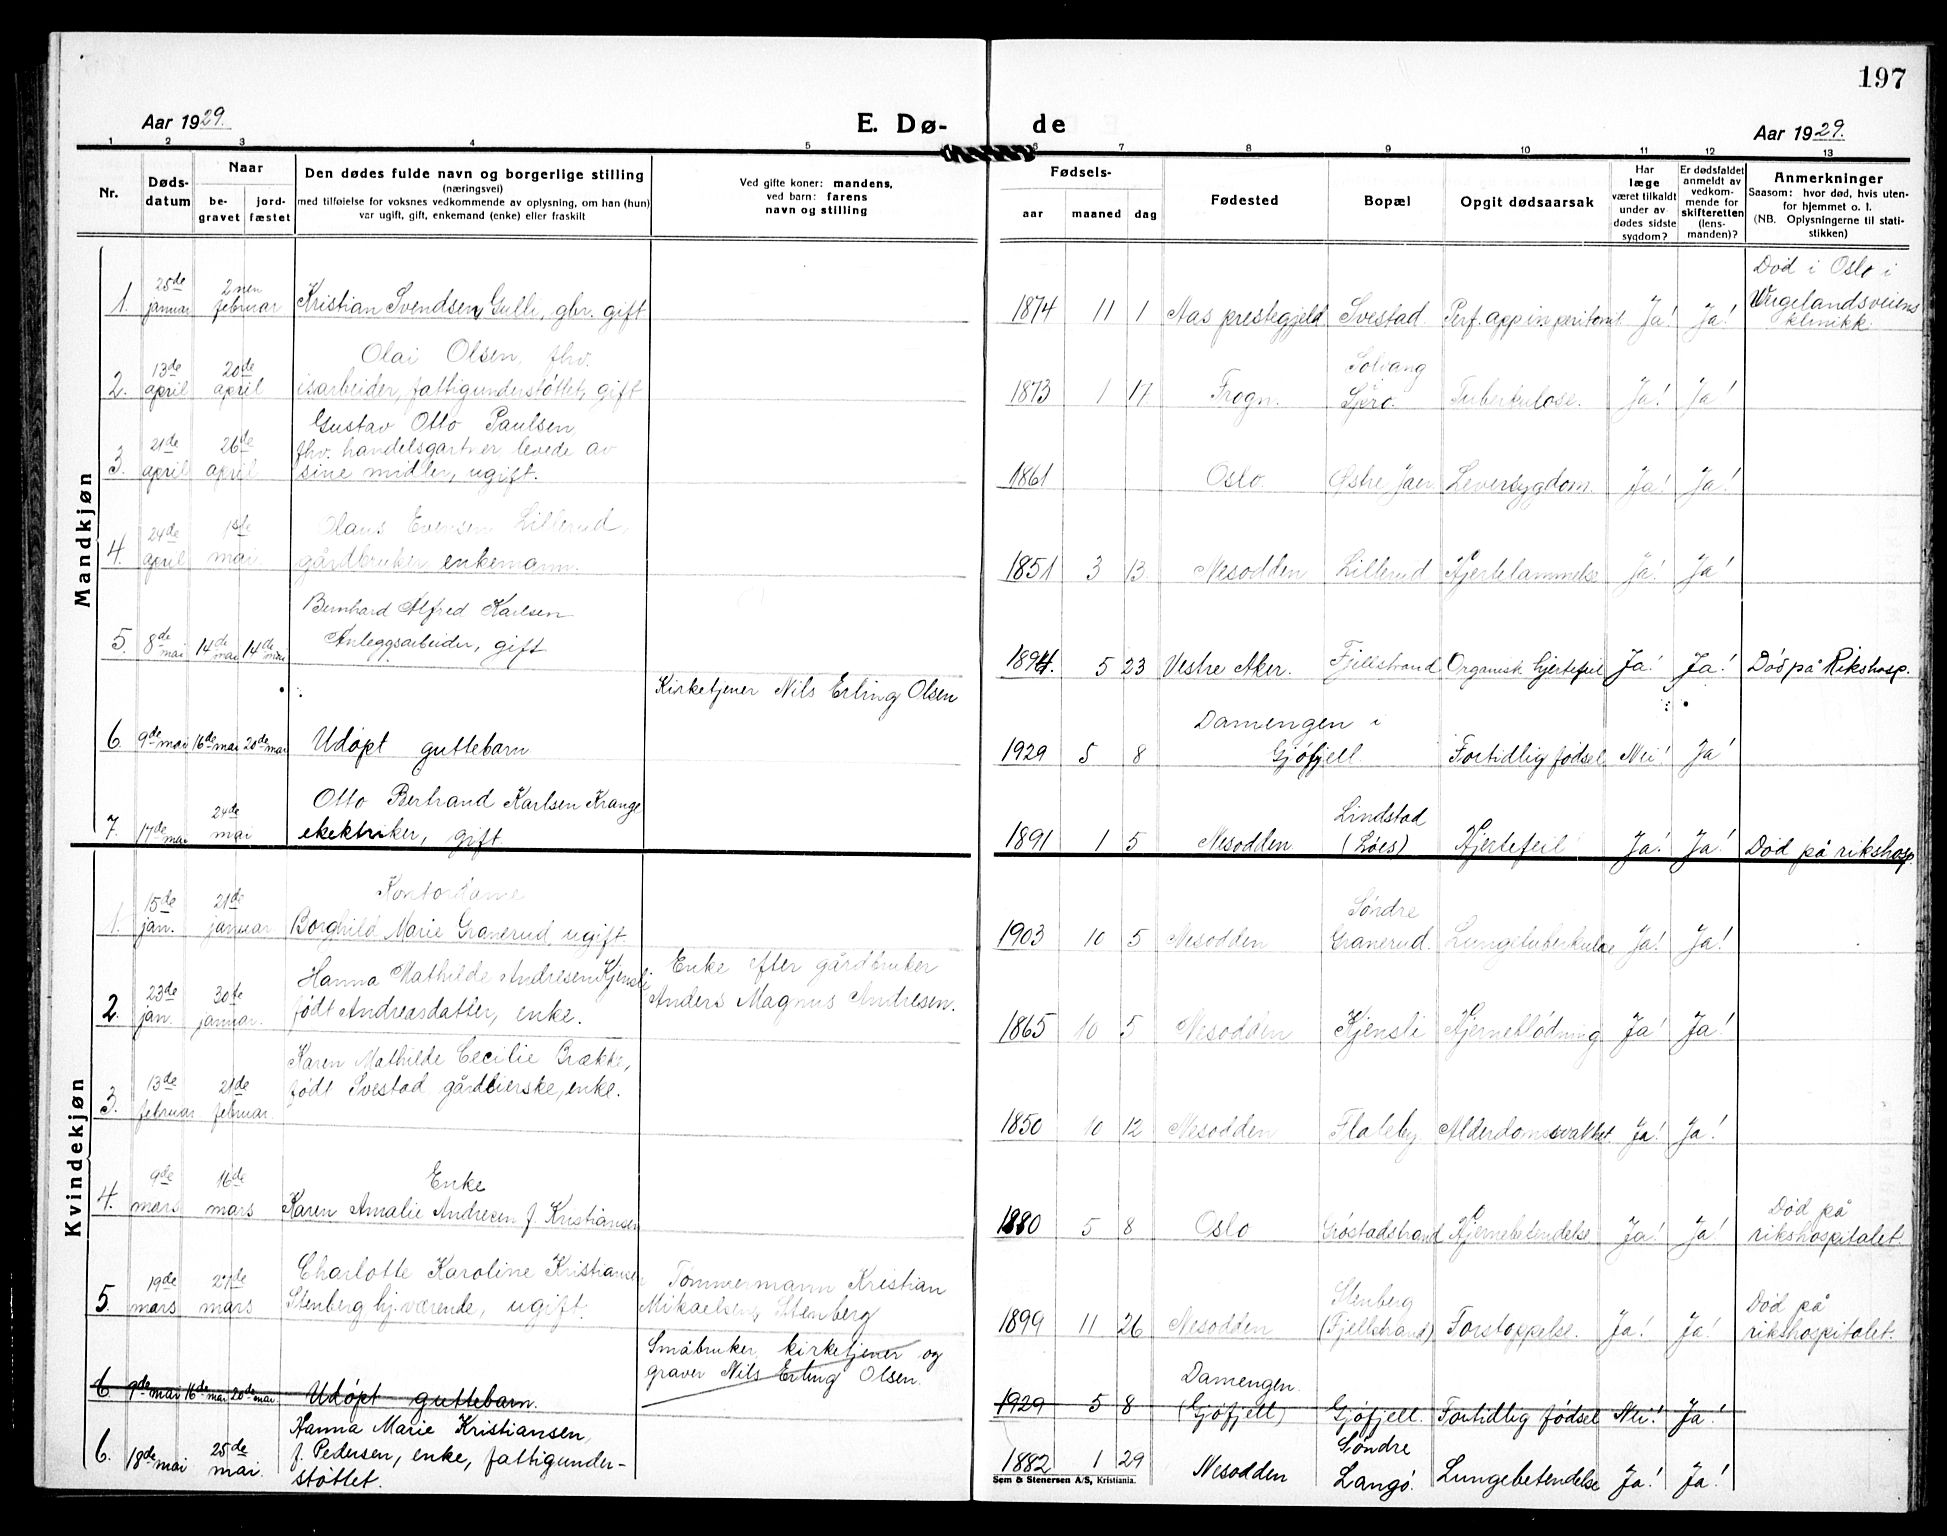 197
Aar 1929.
E. Dø-
de
Aar 1929.
1 2 3 4 5 6 7 8 9 10 11 12 13
Nr.
Døds-
datum
Naar
be-
gravet
jord-
fæstet
Den dødes fulde navn og borgerlige stilling
(næringsvei)
med tilføielse for voksnes vedkommende av oplysning, om han (hun)
var ugift, gift, enkemand (enke) eller fraskilt
Ved gifte koner: mandens,
ved barn: farens
navn og stilling
Fødsels-
aar maaned dag
Fødested
Bopæl
Opgit dødsaarsak
Har
læge
været tilkaldt
under av
dødes sidste
sygdom?
Er dødsfaldet
anmeldt av
vedkom-
mende for
skifteretten
(lens-
manden)?
Anmerkninger
Saasom: hvor død, hvis uten-
for hjemmet o. l.
(NB. Oplysningerne til stati-
stikken)
Mandkjøn
1. 25de januar 2nen februar Kristian Svendsen Gulli, gbr. gift 1874 11 1 Aas prestegjeld Svestad Perf. app in peritonit Ja! Ja! Død i Oslo i
Wergelandsveiens
klinikk.
2. 13de april 20de april Olai Olsen, fhv.
isarbeider, fattigunderstøttet, gift 1873 1 17 Frogn. Solvang
Spro. Tuberkulose. Ja! Ja!
3. 21de april 26de april Gustav Otto Paulsen,
fhv. handelsgartner levede av
sine midler, ugift. 1861 Oslo. Østre Jaer Leversygdom. Ja! Ja!
4. 24de april 1ste mai. Olaus Evensen Lillerud,
gårdbruker, enkemann. 1851 3 13 Nesodden Lillerud Hjertelammelse Ja! Ja!
5. 8de mai 14de mai 14de mai Bernhard Alfred Karlsen
Anleggsarbeider, gift 1894. 5 23 Vestre Aker. Fjellstrand Organisk hjertefeil Ja! Ja! Død på Rikshosp.
6. 9de mai 16de mai 20de mai Udøpt guttebarn Kirketjener Nils Erling Olsen 1929 5 8 Damengen i
Gjøfjell. Fortidlig fødsel Nei! Ja!
7. 17de mai 24de mai Otto Bertrand Karlsen Krange
ekektriker, gift 1891 1 5 Nesodden Lindstad
(Løes) Hjertefeil Ja! Ja! Død på rikshosp.
Kvindekjøn
1. 15de jan. 21de januar Kontordame
Borghild Marie Granerud, ugift 1903 10 5 Nesodden Søndre
Granerud. Lungetuberkulose Ja! Ja!
2. 23de jan. 30te januar. Hanna Mathilde Andresen Kjensli
født Andreasdatter, enke. Enke efter gårdbruker
Anders Magnus Andresen. 1865 10 5 Nesodden Kjensli Hjerneblødning Ja! Ja!
3. 13de februar 21de februar. Karen Mathilde Cecilie Brække,
født Svestad gårdeierske, enke. 1850 10 12 Nesodden Flateby Alderdomssvakhet Ja! Ja!
4. 9de mars 16de mars Enke
Karen Amalie Andresen f. Kristiansen 1880 5 8 Oslo Grøstadstrand Hjernebetendelse Ja! Ja! Død på
rikshospitalet.
5. 19de mars 27de mars Charlotte Karoline Kristiansen
Stenberg hj.værende, ugift. Tømmermann Kristian
Mikaelsen, Stenberg 1899 11 26 Nesodden Stenberg
(Fjellstrand) Forstoppelse. Ja! Ja! Død på
rikshospitalet.
6 9de mai 16de mai 20de mai Udøpt guttebarn. Småbruker, kirketjener og
graver Nils Erling Olsen. 1929 5 8 Damengen.
(Gjøfjell) Gjøfjell. Fortidlig fødsel Nei! Ja!
6. 18de mai 25de mai. Hanna Marie Kristiansen,
f. Pedersen, enke, fattigunder-
støttet. 1882 1 29 Nesodden Søndre
Langø. Lungebetendelse Ja! Ja!
Sem & Stenersen A/S, Kristiania.